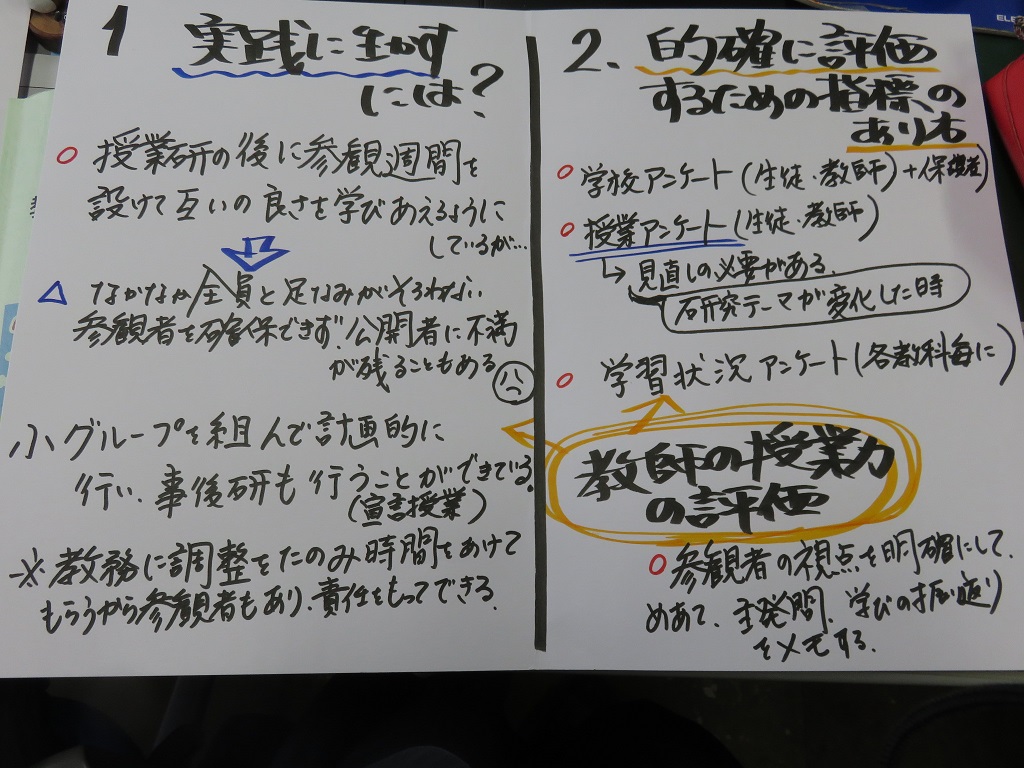 1 実践に生かす
には?
○ 授業研の後に参観週間を
設けて互いの良さを学びあえるように
しているが…
△ なかなか全員と足なみがそろわない
参観者を確保できず、公開者に不満
が残ることもある
小グループを組んで計画的に
行い、事後研も行うことができている。
(宣言授業)
※教務に調整をたのみ時間をあけて
もらうから参観者もあり、責任をもってできる。
2. 的確に評価
するための指標の
あり方
○ 学校アンケート(生徒・教師)+保護者)
○ 授業アンケート(生徒・教師)
↳ 見直しの必要がある。
研究テーマが変化した時
○ 学習状況アンケート(各教科毎に)
教師の授業力
の評価
○ 参観者の視点を明確にして、
めあて、主発問、学びの振り返り
をメモする。
ELE